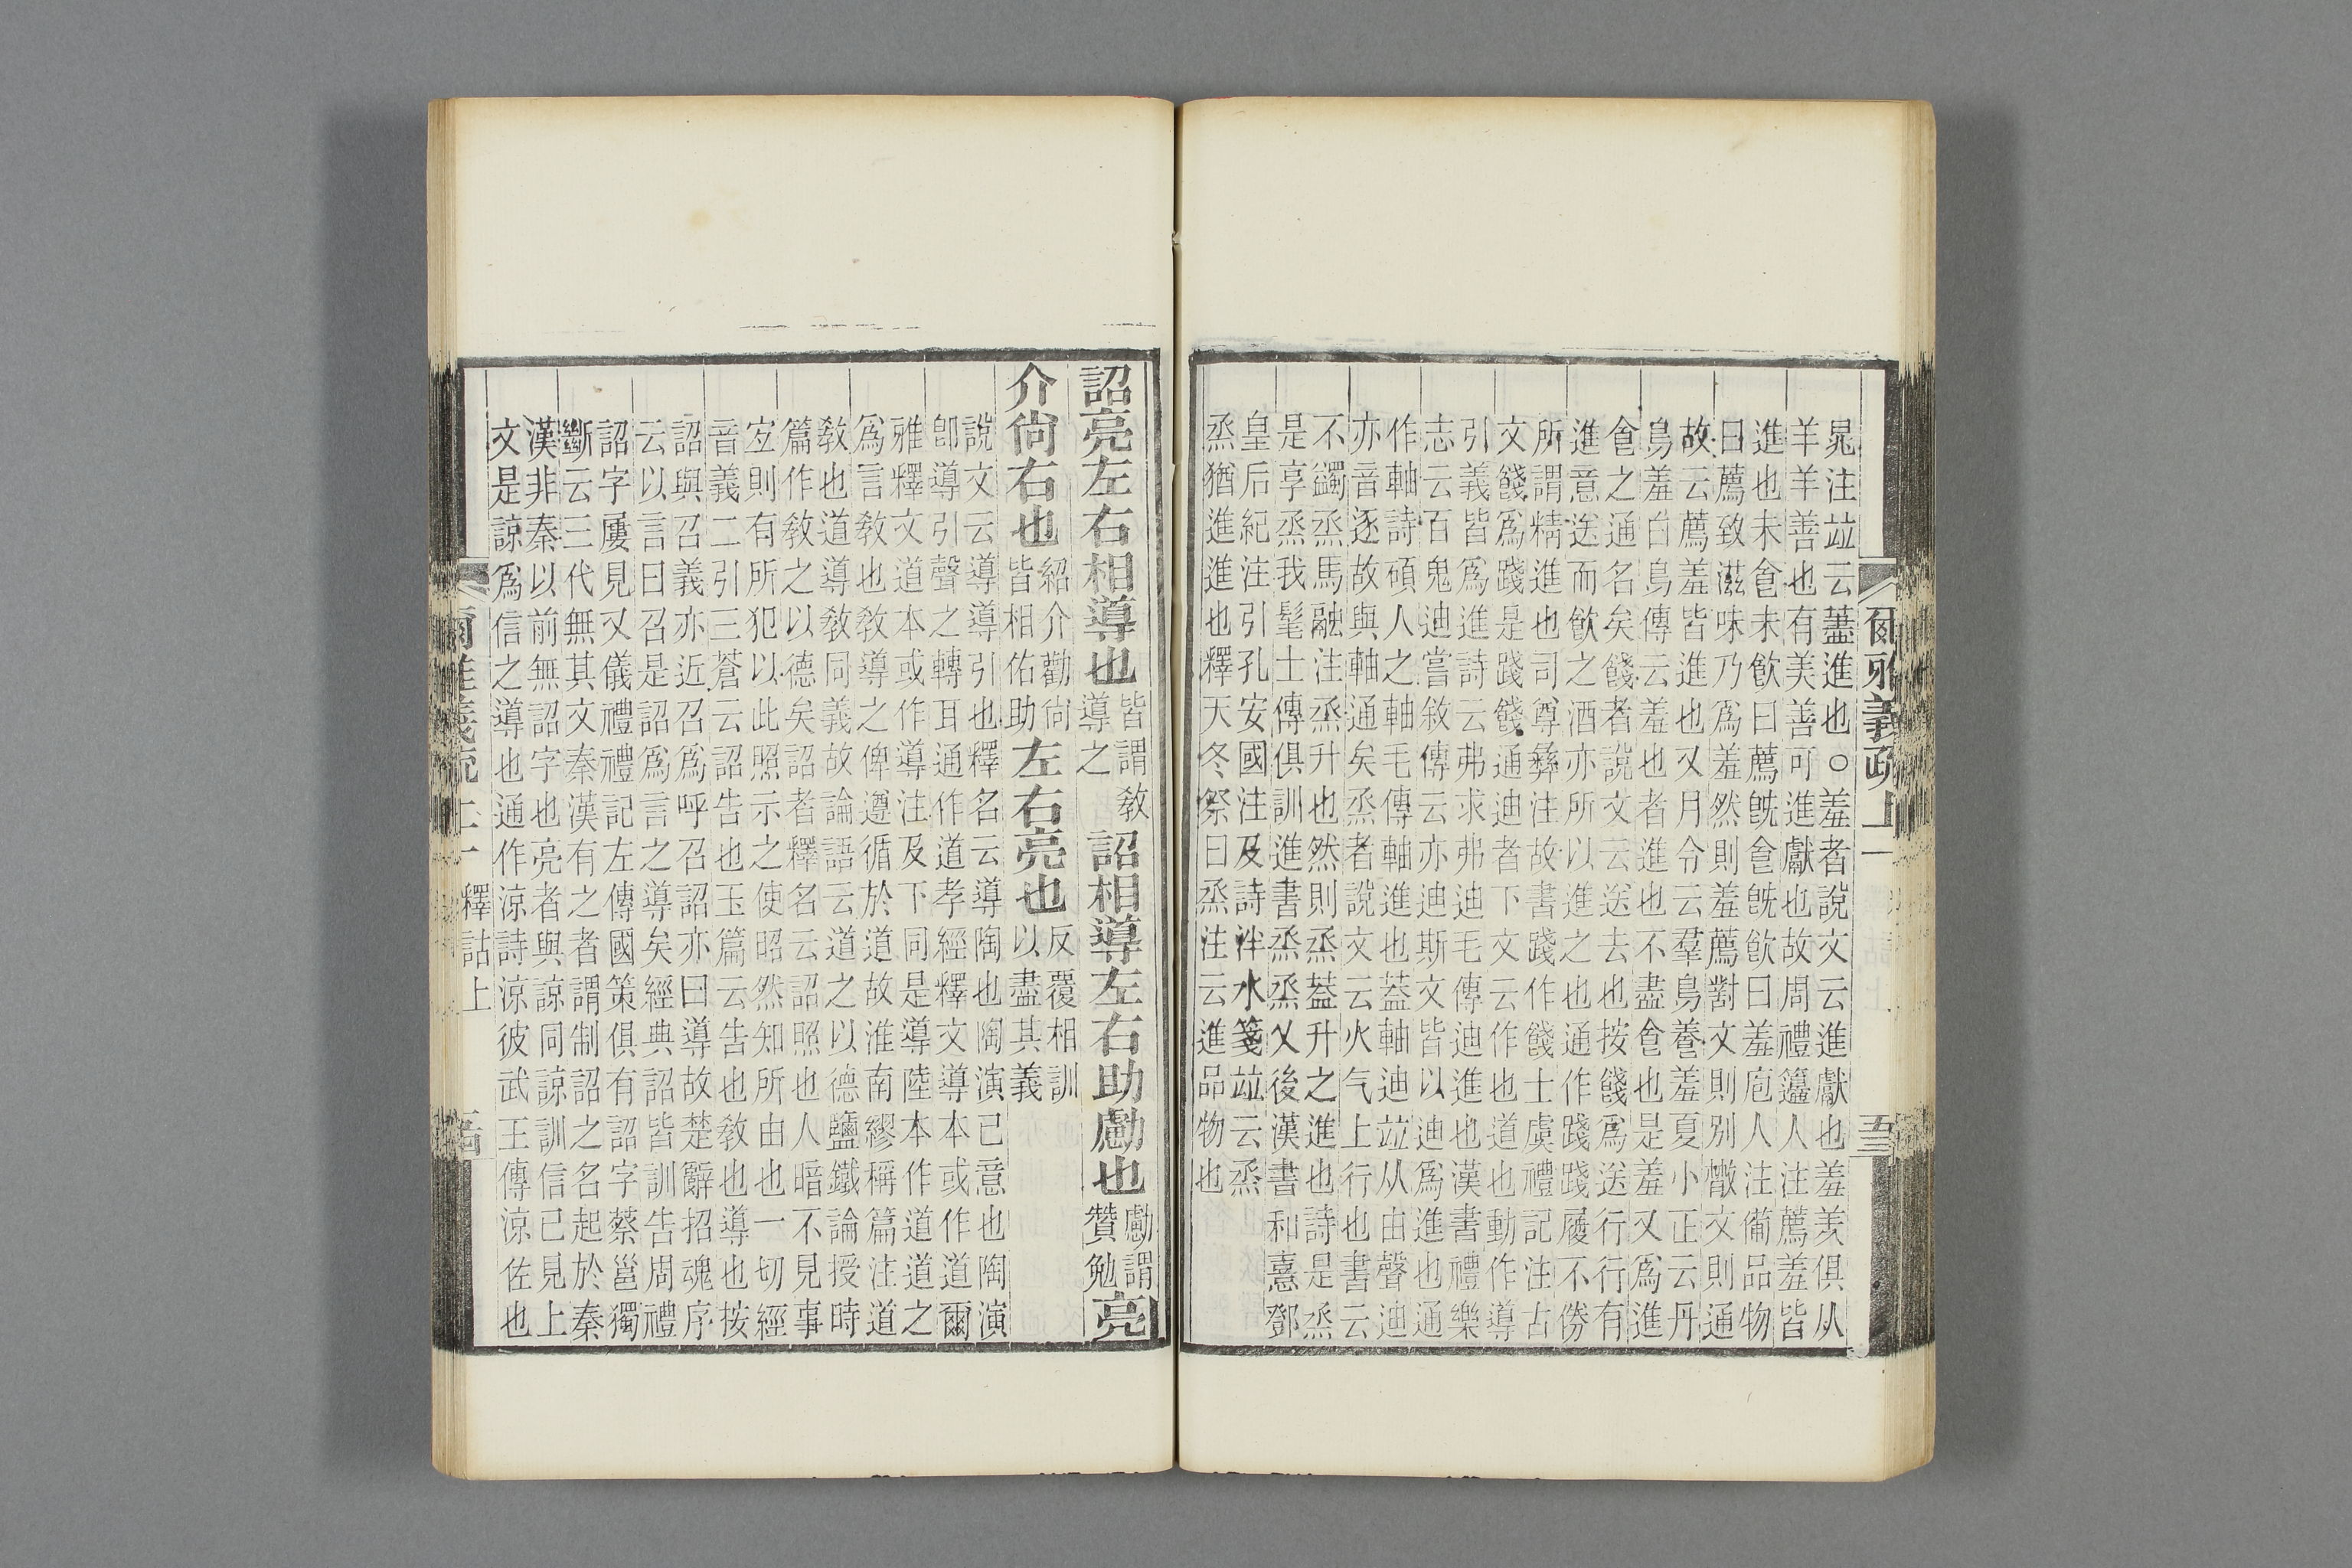 爾雅義疏上一
晁注竝云藎進也○羞者說文云進獻也羞羑俱从
羊羊善也有美善可進獻也故周禮籩人注薦羞皆
進也未食未飲曰薦旣食旣飲曰羞庖人注備品物
曰薦致滋味乃爲羞然則羞薦對文則別㪚文則通
故云薦羞皆進也又月令云羣鳥養羞夏小正云丹
鳥羞白鳥傳云羞也者進也不盡食也是羞又爲進
食之通名矣餞者說文云送去也按餞爲送行行有
進意送而飲之酒亦所以進之也通作踐踐履不傍
所謂精進也司尊彝注故書踐作餞士虞禮記注古
文餞爲踐是踐餞通迪者下文云作也道也動作導
引義皆爲進詩云弗求弗迪毛傳迪進也漢書禮樂
志云百鬼迪嘗敘傳云亦迪斯文皆以迪爲進也通
作軸詩碩人之軸毛傳軸進也蓋軸迪竝从由聲迪
亦音逐故與軸通矣烝者說文云火气上行也書云
不蠲烝馬融注烝升也然則烝蓋升之進也詩是烝
是享烝我髦士傳俱訓進書烝烝乂後漢書和熹鄧
皇后紀注引孔安國注及詩泮水箋竝云烝
烝猶進進也釋天冬祭曰烝注云進品物也
詔亮左右相導也皆謂敎導之詔相導左右助勴也勴謂贊勉亮
介尙右也紹介勸尙皆相佑助左右亮也反覆相訓以盡其義
說文云導導引也釋名云導陶也陶演己意也陶演
卽導引聲之轉耳通作道孝經釋文導本或作道爾
雅釋文道本或作導注及下同是導陸本作道道之
爲言敎也敎導之俾遵循於道故淮南繆稱篇注道
敎也道導敎同義故論語云道之以德鹽鐵論授時
篇作敎之以德矣詔者釋名云詔照也人暗不見事
宜則有所犯以此照示之使昭然知所由也一切經
音義二引三蒼云詔告也玉篇云告也敎也導也按
詔與召義亦近召爲呼召詔亦曰導故楚辭招魂序
云以言曰召是詔爲言之導矣經典詔皆訓告周禮
詔字屢見又儀禮禮記左傳國策俱有詔字蔡邕獨
斷云三代無其文秦漢有之者謂制詔之名起於秦
漢非秦以前無詔字也亮者與諒同諒訓信已見上
文是諒爲信之導也通作涼詩涼彼武王傳涼佐也
爾雅義疏上一 釋詁上